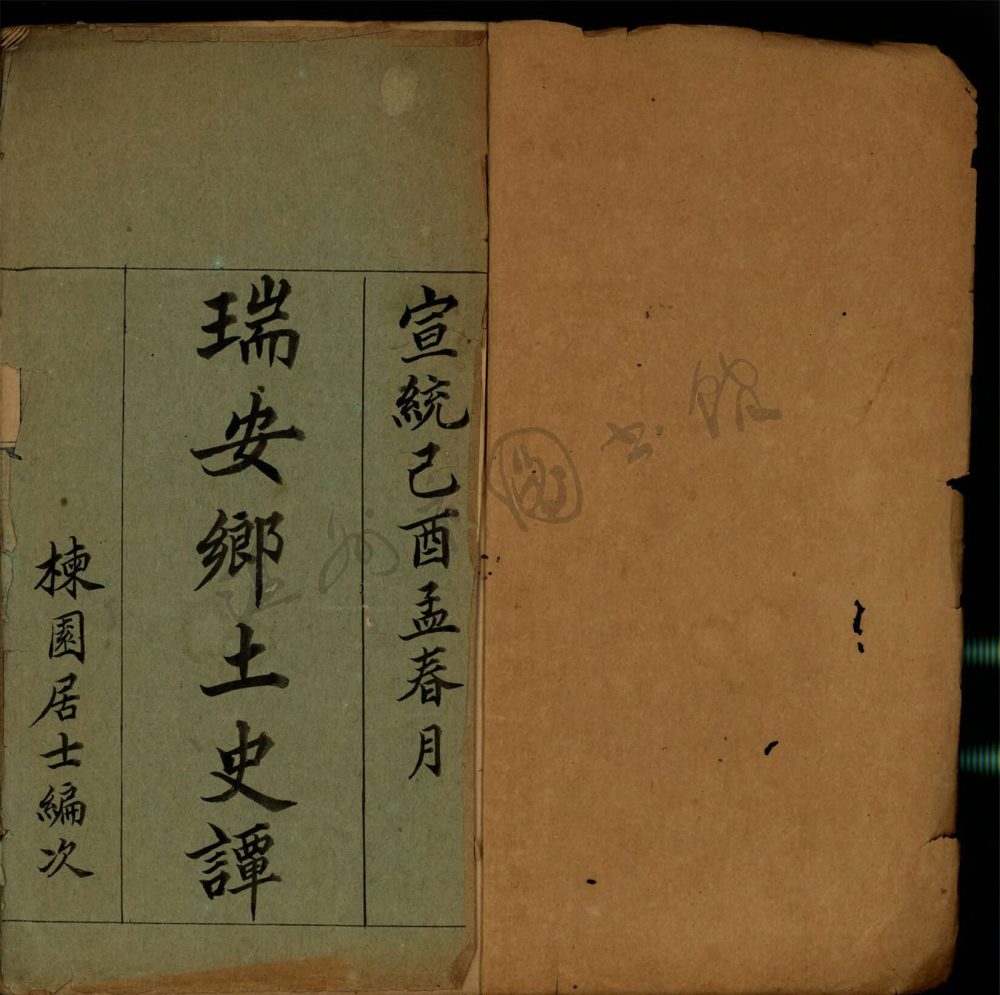 宣統己酉孟春月
瑞安鄉土史譚
楝園居士編次
圖书馆